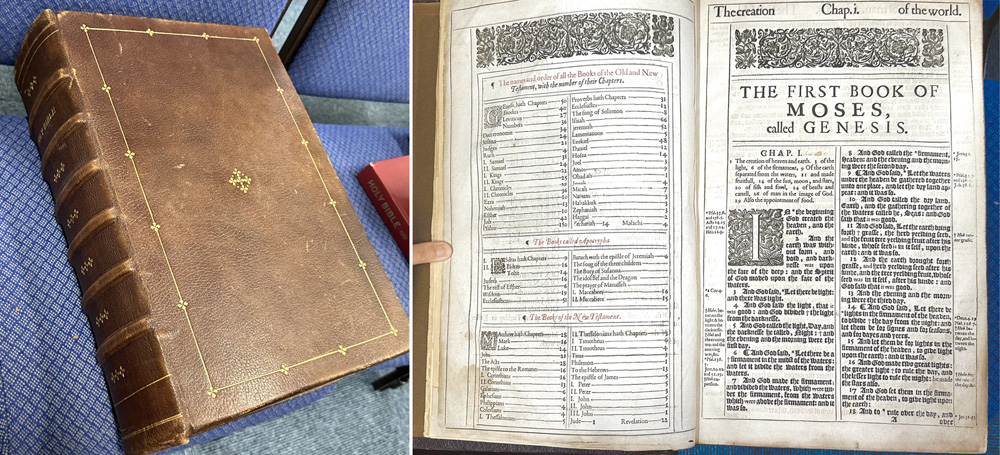 HOLY BIBLE
BIBLE
¶ The names and order of all the Books of the Old and New
Testament, with the number of their Chapters.
Genesis hath Chapters 50
Exodus 40
Leviticus 27
Numbers 36
Deuteronomie 34
Joshua 24
Judges 21
Ruth 4
I. Samuel 31
II. Samuel 24
I. Kings 22
II. Kings 25
I. Chronicles 29
II. Chronicles 36
Ezra 10
Nehemiah 13
Esther 10
Iob 42
Psalms 150
Proverbs hath Chapters 31
Ecclesiastes 12
The song of Solomon 8
Isaiah 66
Jeremiah 52
Lamentations 5
Ezekiel 48
Daniel 12
Hosea 14
Joel 3
Amos 9
Obadiah 1
Jonah 4
Micah 7
Nahum 3
Habakkuk 3
Zephaniah 3
Zechariah 14 Malachi 4
¶ The Books called Apocrypha.
Esdras hath Chapters 9
II. Esdras 16
Tobit 14
Judeth 16
The rest of Esther 6
Wisdome 19
Ecclesiasticus 51
Baruch with the epistle of Jeremiah 6
The song of the three children
The story of Susanna
The idol Bel and the Dragon
The prayer of Manasseh
I. Maccabees 16
II. Maccabees 15
¶ The Books of the New Testament.
Matthew hath Chapters 28
Mark 16
Luke 24
John 21
The Acts 28
The epistle to the Romanes 16
I. Corinthians 16
II. Corinthians 13
Galatians 6
Ephesians 6
Philippians 4
Colossians 4
I. Thessalonians 5
II. Thessalonians hath Chapters 3
I. Timotheus 6
II. Timotheus 4
Titus 3
Philemon 1
To the Hebrews 13
The epistle of James 5
I. Peter 5
II. Peter 3
I. John 5
II. John 1
III. John 1
Jude 1 Revelation 22
The creation Chap. i. of the world.
THE FIRST BOOK OF
MOSES,
called GENESIS.
CHAP. I.
1 The creation of heaven and earth, 3 of the
light, 6 of the firmament, 9 Of the earth
separated from the waters, 11 and made
fruitfull, 14 of the sun, moon, and stars,
20 of fish and fowl, 24 of beasts and
cattell, 26 of man in the image of God.
29 Also the appointment of food.
IN the beginning
God created the
heaven, and the
earth.
2 And the
earth was with-
out form, and
void, and dark-
nesse was upon
the face of the deep: and the Spirit
of God moved upon the face of the
waters.
3 And God said, Let there be light:
and there was light.
4 And God saw the light, that it
was good: and God divided the light
from the darknesse.
5 And God called the light, Day, and
the darknesse he called, Night: and
the evening and the morning were the
first day.
6 ¶ And God said, Let there be a
firmament in the midst of the waters:
and let it divide the waters from the
waters.
7 And God made the firmament;
and divided the waters, which were un-
der the firmament, from the waters
which were above the firmament: and it
was so.
8 And God called the firmament,
Heaven: and the evening and the morn-
ing were the second day.
9 ¶ And God said, Let the waters
under the heaven be gathered together
unto one place, and let the dry land ap-
pear: and it was so.
10 And God called the dry land,
Earth, and the gathering together of
the waters called he, Seas: and God
saw that it was good.
11 And God said, Let the earth bring
forth grasse, the herb yeelding seed,
and the fruit tree yeelding fruit after his
kinde, whose seed is in it self, upon the
earth: and it was so.
12 And the earth brought forth
grasse, and herb yeelding seed after his
kinde, and the tree yeelding fruit, whose
seed was in it self, after his kinde: and
God saw that it was good.
13 And the evening and the morn-
ing were the third day.
14 ¶ And God said, Let there be
lights in the firmament of the heaven,
to divide the day from the night: and
let them be for signes and for seasons,
and for dayes and yeers.
15 And let them be for lights in the
firmament of the heaven, to give light
upon the earth: and it was so.
16 And God made two great lights:
the greater light to rule the day, and
the lesser light to rule the night: he made
the stars also.
17 And God set them in the firma-
ment of the heaven, to give light upon
the earth:
18 And to rule over the day, and
A over